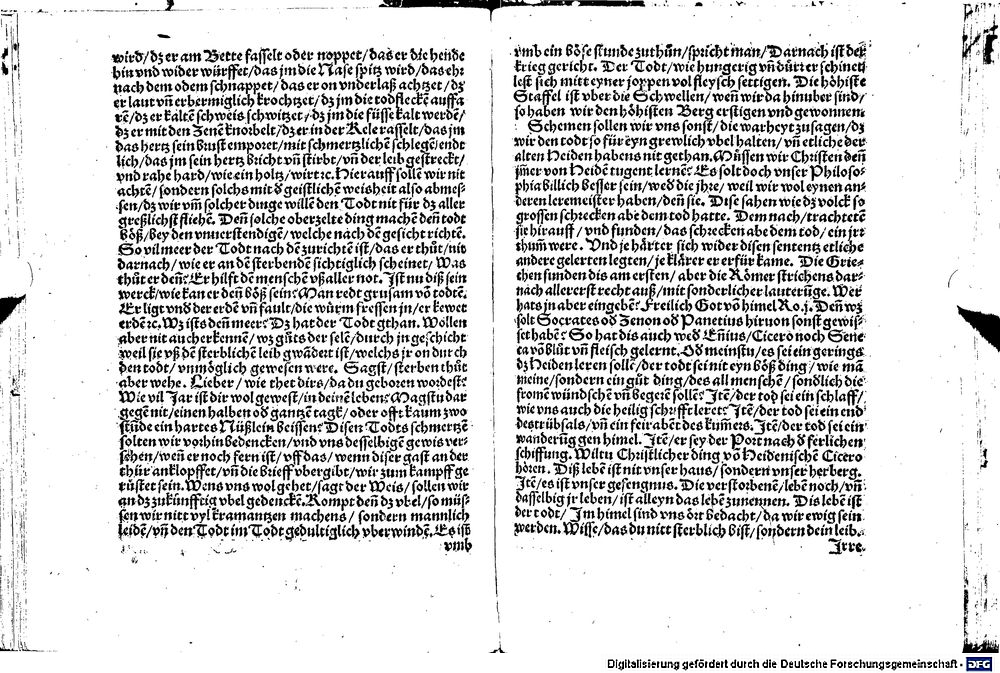 wird/dz er am Bette fasselt oder noppet/das er die hende
hin vnd wider würffet/das jm die Nase spitz wird/das ehr
nach dem odem schnappet/das er on vnderlaß achtzet/dz
er laut vñ erbermiglich krochtzet/dz jm die todfleckẽ auffa
rẽ/dz er kaltẽ schweis schwitzet/dz jm die füsse kalt werdẽ/
dz er mit den Zenẽ knorbelt/dz er in der Kele rasselt/das jm
das hertz sein brust emporet/mit schmertzlichẽ schlegẽ/endt
lich/das jm sein hertz bricht vñ stirbt/vñ der leib gestreckt/
vnd rahe hard/wie ein holtz/wirt ꝛc. Hierauff sollẽ wir nit
achtẽ/sondern solchs mit d̃ geistlichẽ weisheit also abmes-
sen/dz wir vm̃ solcher dinge willẽ den Todt nit für dz aller
greßlichst fliehẽ. Deñ solche oberzelte ding machẽ deñ todt
böß/bey den vnuerstendigẽ/welche nach dẽ gesicht richtẽ.
So vil meer der Todt nach dẽ zurichtẽ ist/das er thüt/nit
darnach/wie er an dẽ sterbendẽ sichtiglich scheinet/Was
thüt er deñ? Er hilft dẽ menschẽ vß aller not. Ist nu diß sein
werck/wie kan er deñ böß sein? Man redt grusam võ todtẽ.
Er ligt vnd der erdẽ vñ fault/die würm fressen jn/er kewet
erdẽ ꝛc. Wz ists deñ meer? Dz hat der Todt gthan. Wöllen
aber nit auch erkennẽ/wz güts der selẽ/durch jn geschicht
weil sie vß dẽ sterblichẽ leib gwãdert ist/welchs jr on durch
den todt/vnmöglich gewesen were. Sagst/sterben thüt
aber wehe. Lieber/wie thet dirs/da du geboren wordest?
Wie vil Jar ist dir wol gewest/in deinẽ lebẽ? Magstu dar
gegẽ nit/einen halben od̃ gantzẽ tagk/oder offt kaum zwo
stũde ein hartes Nüßlein beissen? Disen Todts schmertzẽ
solten wir vorhin bedencken/vnd vns desselbigẽ gewis ver-
sehen/weñ er noch fern ist/vff das/wenn diser gast an der
thür anklopffet/vñ die brieff vbergibt/wir zum kampff ge
rüstet sein. Wens vns wol gehet/sagt der Weis/sollen wir
an dz zukünfftig vbel gedenckẽ. Kompt deñ dz vbel/so müs-
sen wir nitt vyl kramantzen machens/sondern mannlich
leidẽ/vñ den Todt im Todt gedultiglich vberwindẽ. Es ist
vmb
vmb ein böse stunde zuthůn/spricht man/Darnach ist der
krieg gericht. Der Todt/wie hungerig vñ dürr er schinet/
lest sich mitt eyner joppen vol fleysch settigen. Die höhiste
Staffel ist vber die Schwellen/weñ wir da hinuber sind/
so haben wir den höhisten Berg erstigen vnd gewonnem
Schemen sollen wir vns sonst/die warheyt zusagen/dz
wir den todt so für eyn grewlich vbel halten/vñ etliche der
alten Heiden habens nit gethan. Müssen wir Christen deñ
jm̃er von Heidẽ tugent lernẽ? Es solt doch vnser Philoso-
phia billich besser sein/wed̃ die jhre/weil wir wol eynen an-
deren leremeister haben/deñ sie. Dise sahen wie dz volck so
grossen schrecken abe dem tod hatte. Dem nach/trachtetẽ
sie hirauff/vnd funden/das schrecken abe dem tod/ein jrr
thum̃ were. Vnd je härter sich wider disen sententz etliche
andere gelerten legten/je klärer er erfür kame. Die Grie-
chen funden dis am ersten/aber die Römer strichens dar-
nach allererst recht auß/mit sonderlicher lauterũge. Wer
hats jn aber eingebẽ? Freilich Got võ himel Ro. j. Deñ wz
solt Socrates od̃ Zenon od̃ Panetius hiruon sonst gewis-
set habẽ? So hat dis auch wed̃ Eñius/Cicero noch Sene
ca võ blůt vñ fleisch gelernt. Od̃ meinstu/es sei ein gerings
dz Heiden leren sollẽ/der todt sei nit eyn böß ding/wie mã
meine/sondern ein gůt ding/des all menschẽ/sondlich die
fromẽ wündschen vñ begerẽ sollẽ? Itẽ/der tod sei ein schlaff/
wie vns auch die heilig schrifft leret? Itẽ/der tod sei ein end
des trübsals/vñ ein feirabẽt des kum̃ers. Itẽ/der tod sei ein
wanderũg gen himel. Itẽ/er sey der Port nach d̃ ferlichen
schiffung. Wiltu Christlicher ding võ Heidenischẽ Cicero
hören. Diß lebẽ ist nit vnser haus/sondern vnser herberg.
Itẽ/es ist vnser gefengnus. Die verstorbenẽ/leben noch/vñ
dasselbig jr leben/ist alleyn das lebẽ zunennen. Dis lebẽ ist
der todt/Im himel sind vns ört bedacht/da wir ewig sein
werden. Wisse/das du nitt sterblich bist/sondern dein leib.
Irre.
Digitalisierung gefördert durch die Deutsche Forschungsgemeinschaft - DFG